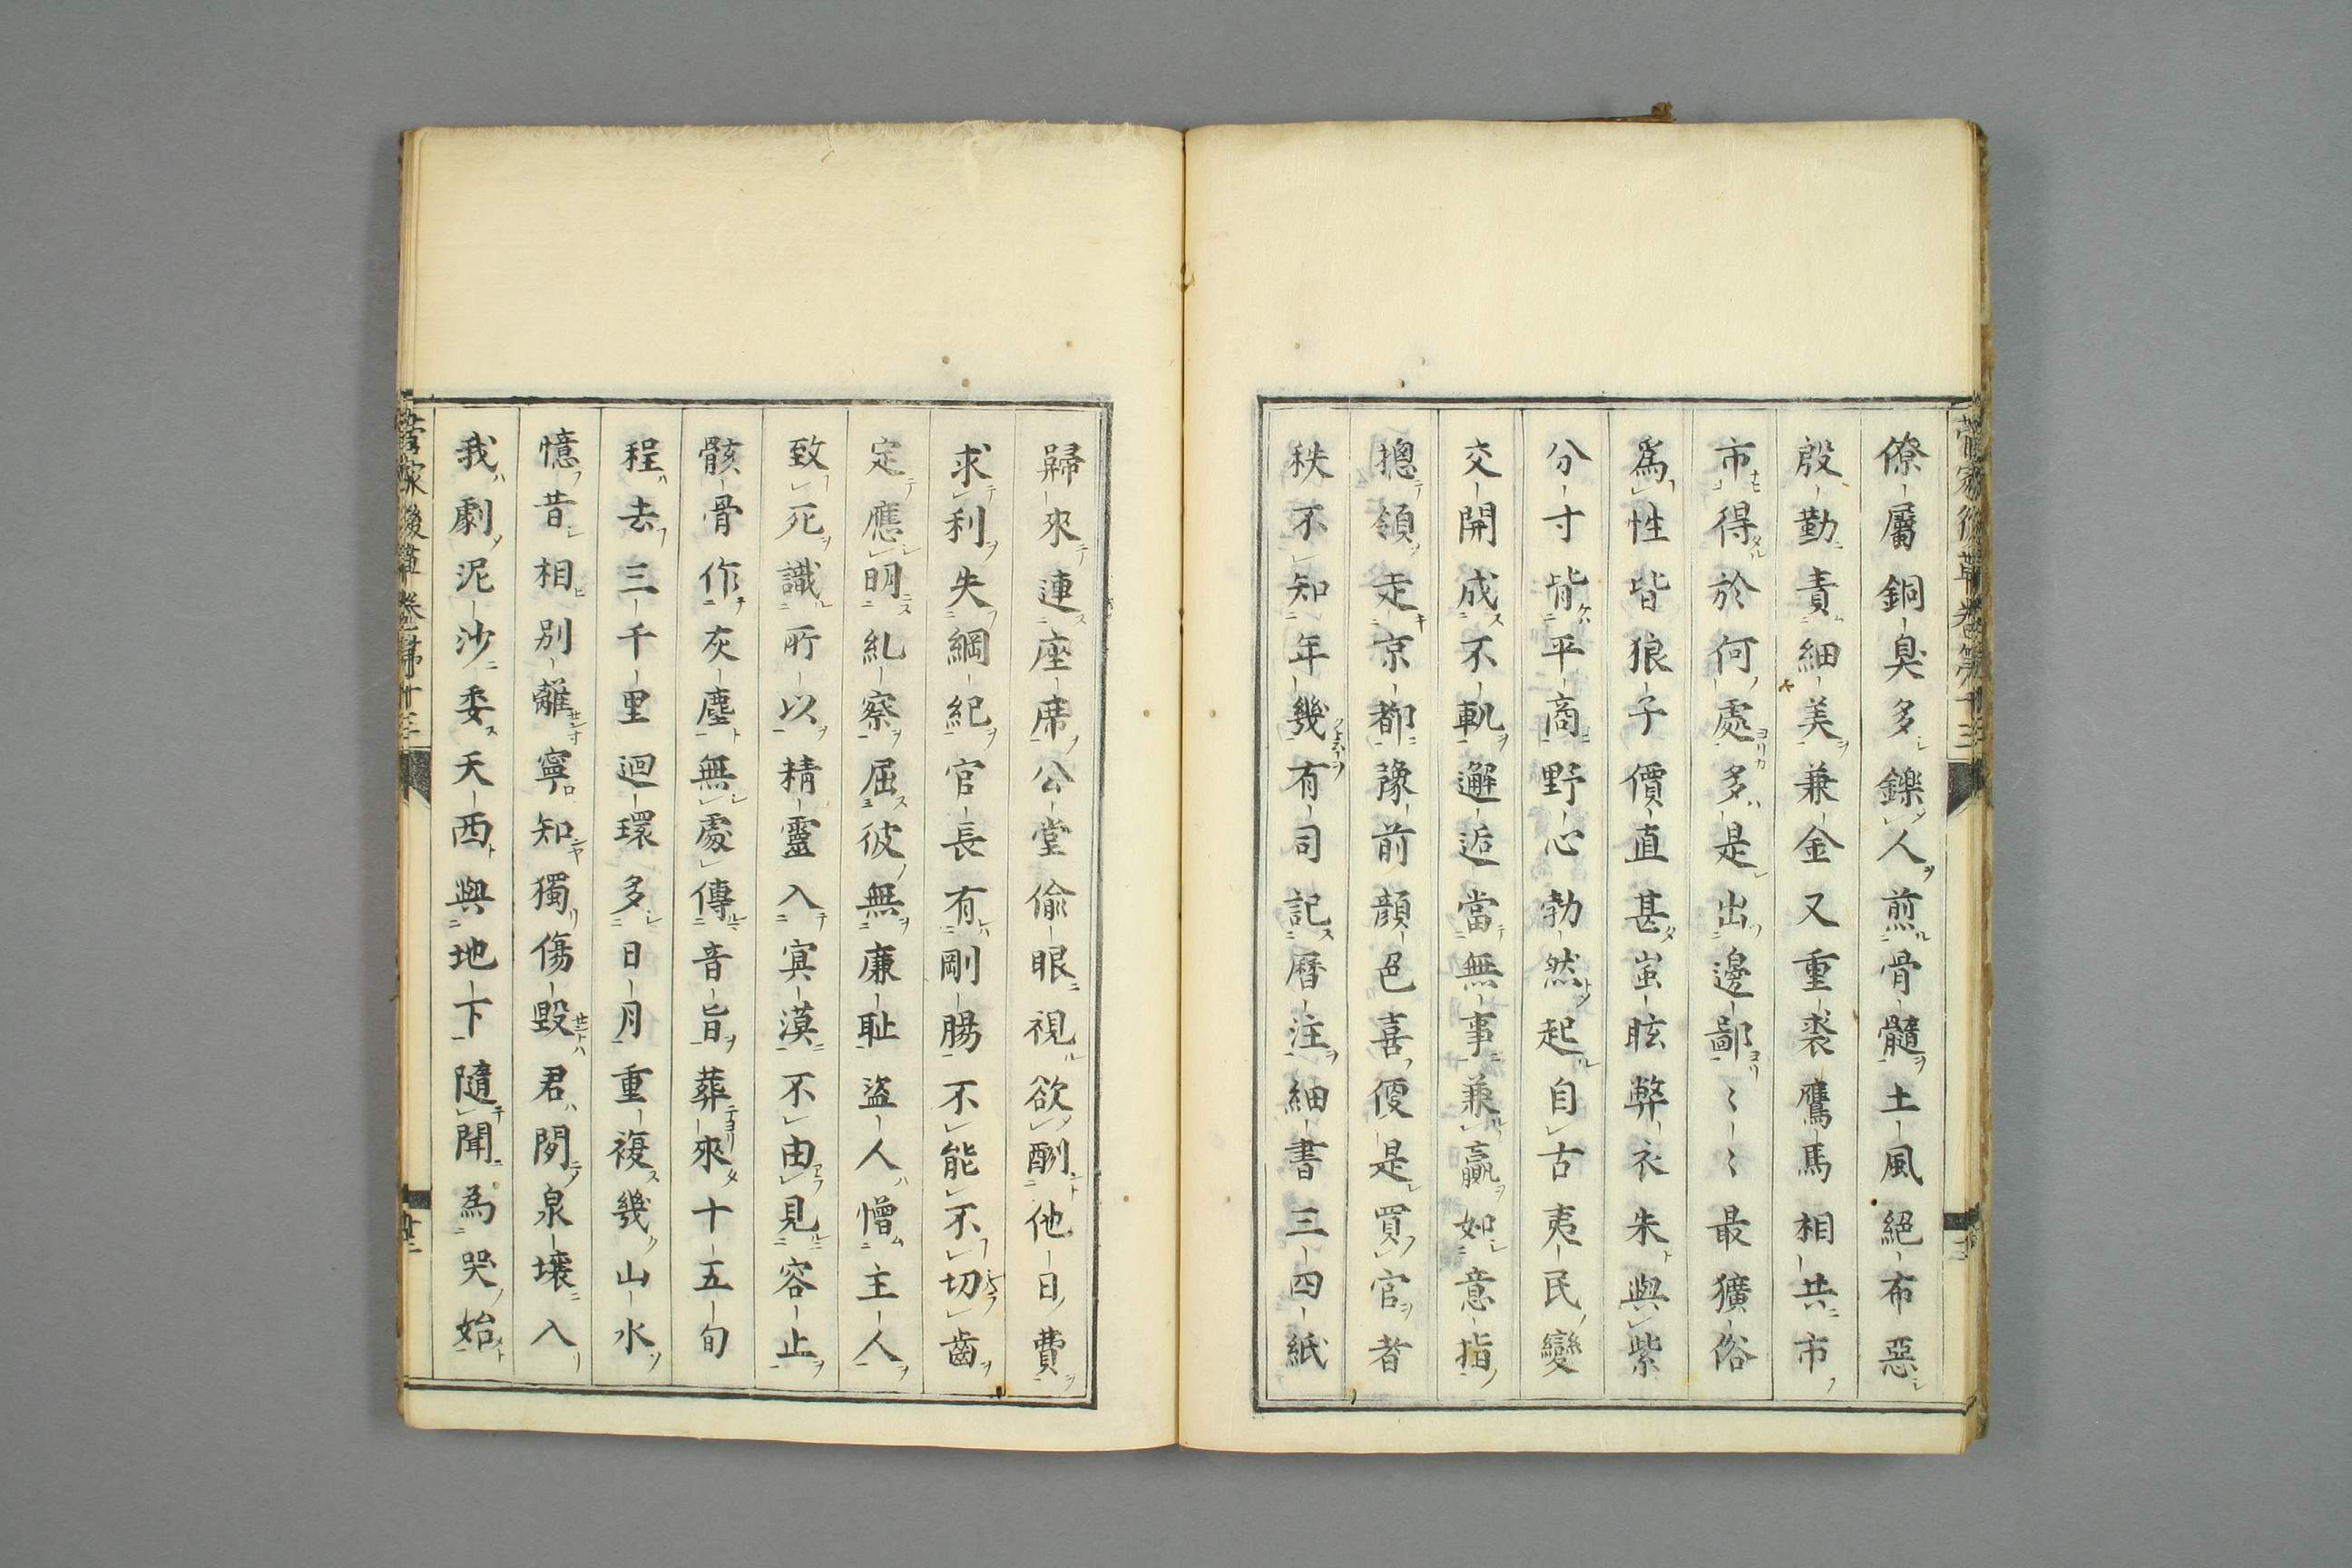 僚屬銅臭多鑠人煎骨髓土風絕布惡
殷勤責細美兼金又重裘鷹馬相共市
市得於何處多是出邊鄙〻〻最獷俗
爲性皆狼子價直甚蚩眩弊衣朱與紫
分寸背平商野心勃然起自古夷民變
交開成不軌邂逅當無事兼贏如意指
摠領走京都豫前顔色喜便是買官者
秩不知年幾有司記曆注細書三四紙
歸來連座席公堂偷眼視欲酬他日費
求利失綱紀官長有剛腸不能不切齒
定應明糺察屈彼無廉耻盜人憎主人
致死識所以精靈入冥漠不由見容止
骸骨作灰塵無處傳音旨葬來十五旬
程去三千里迴環多日月重複幾山水
憶昔相別離寧知獨傷毀君閇泉壤入
我劇泥沙委天西與地下隨聞為哭始
菅家後草卷第十三